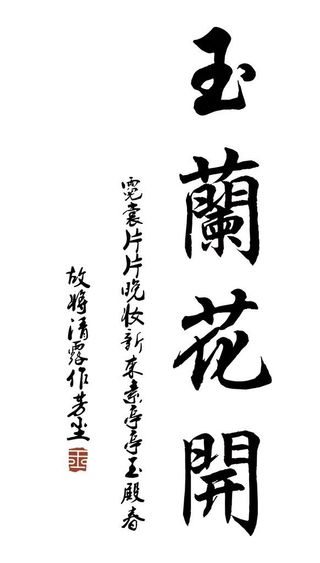 玉蘭花開
霓裳片片晚妆新束素亭亭玉殿春
故將清露作芳尘